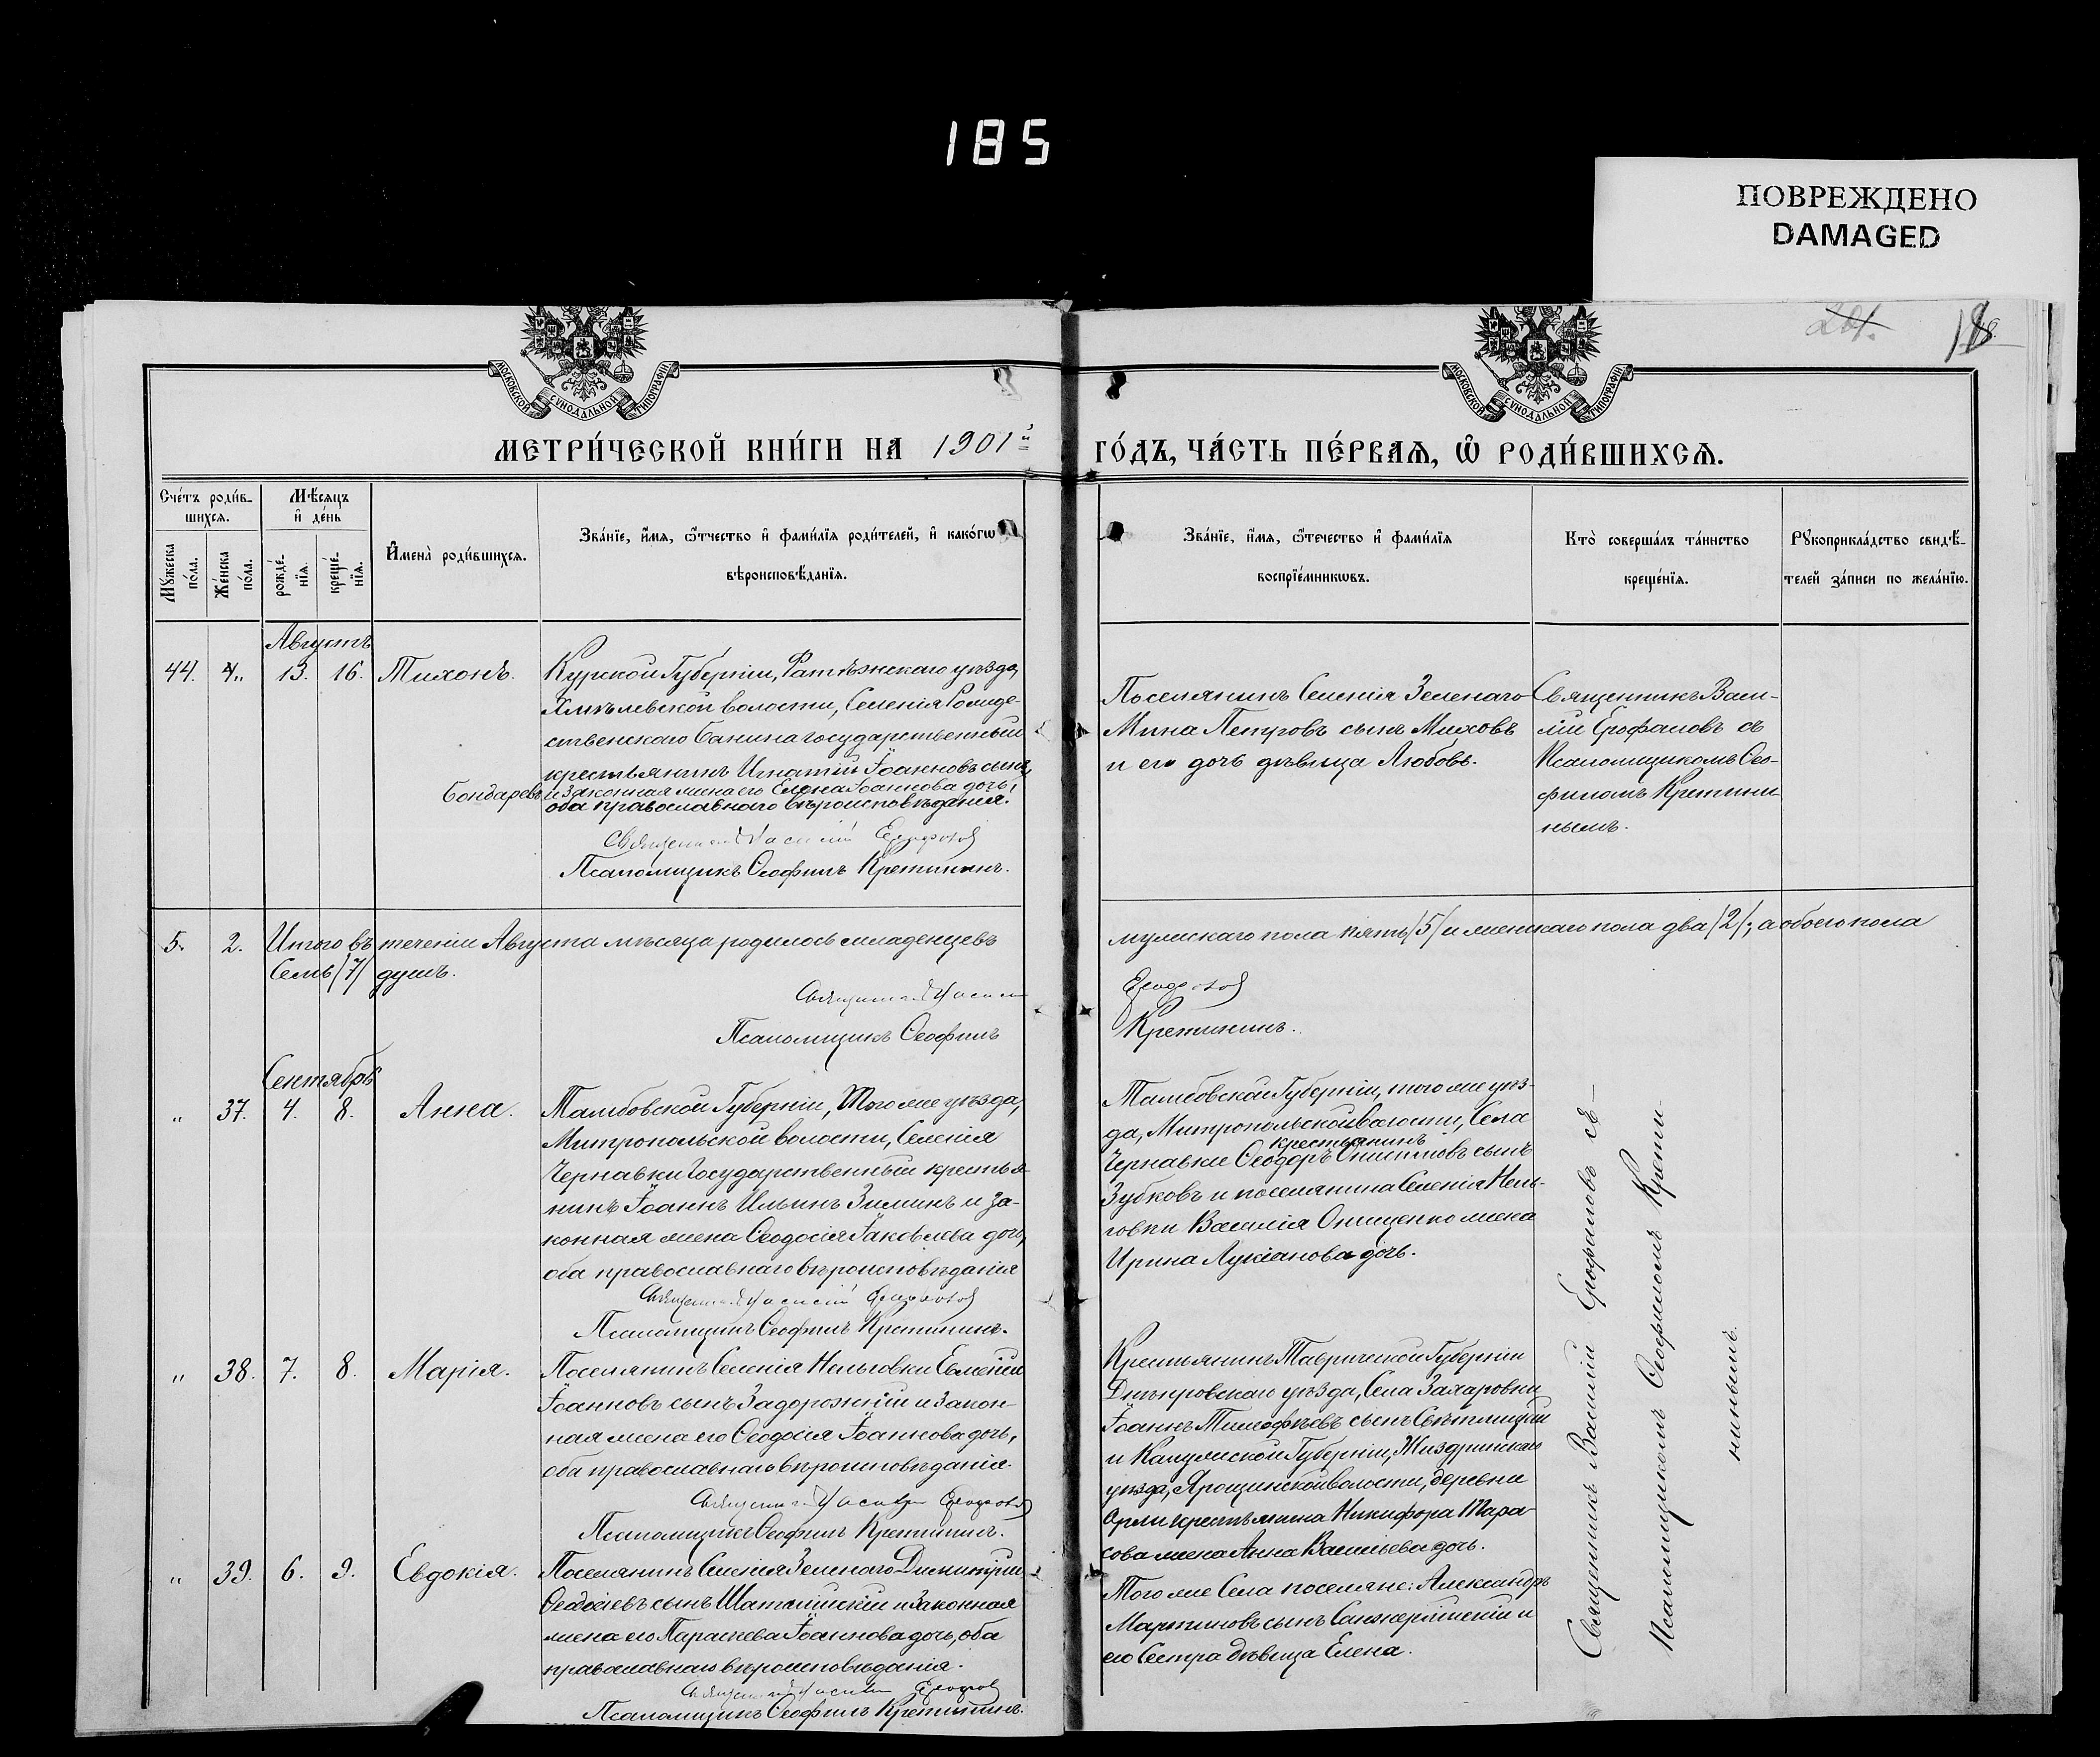 185
ПОВРЕЖДЕНО
DAMAGED
201.
МОСКОВСКОЙ СУНОДАЛЬНОЙ ТИПОГРАФІИ
МОСКОВСКОЙ СУНОДАЛЬНОЙ ТИПОГРАФІИ
МЕТРИ́ЧЕСКОЙ КНИ́ГИ НА 1901й
ГО́ДЪ, ЧА́СТЬ ПЕ́РВАѦ, Ѡ РОДИ́ВШИХСѦ.
Сче́тъ роди́в-
шихсѧ.
Мꙋ́жеска по́ла.
Же́нска по́ла.
Мѣ́сѧцъ
и де́нь
рожде́-нїѧ.
креще́-нїѧ.
Имена̀ роди́вшихсѧ.
Зва́нїе, и́мѧ, ѿчество и фами́лїѧ роди́телей, и како́гѡ
вѣроисповѣ́данїѧ.
Зва́нїе, и́мѧ, ѿтечество и фами́лїѧ
воспрїе́мникѡвъ.
Кто̀ соверша́лъ та́инство
креще́нїѧ.
Рꙋкоприкла́дство свидѣ́-
телей за́писи по жела́нїю.
Августъ
44. „ 13. 16. Тихонъ.
Курской Губерніи, Фатѣжскаго уѣзда,
Хмѣлевской волости, Селенія Рожде-
ственскаго Банина государственный
крестьянинъ Игнатій Іоанновъ сынъ
Бондаревъ и законная жена его Елена Іоаннова дочь,
оба православнаго вѣроисповѣданія.
Священникъ Василій Ерофаловъ
Псаломщикъ Ѳеофилъ Кретининъ.
Поселянинъ Селенія Зеленаго
Мина Петровъ сынъ Миховъ
и его дочь дѣвица Любовь.
Священникъ Васи-
лій Ерофаловъ съ
Псаломщикомъ Ѳео-
филомъ Кретини-
нымъ.
5. 2. Итого въ теченіи Августа мѣсяца родилось младенцевъ
мужскаго пола пять /5/ и женскаго пола два /2/, а обоего пола
Семь /7/ душъ.
Священникъ Василій
Ерофаловъ
Псаломщикъ Ѳеофилъ
Кретининъ.
Сентябрь
„ 37. 4. 8. Анна.
Тамбовской Губерніи, Того же уѣзда,
Митропольской волости, Селенія
Чернавки Государственный крестья-
нинъ Іоаннъ Ильинъ Зиминъ и за-
конная жена Ѳеодосія Іаковлева дочь,
оба православнаго вѣроисповѣданія
Священникъ Василій Ерофаловъ
Псаломщикъ Ѳеофилъ Кретининъ.
Тамбовской Губерніи, того же уѣз-
да, Митропольской волости, Села
крестьянинъ
Чернавки Ѳеодоръ Филипповъ сынъ
Зубковъ и поселянина Селенія Нель-
говки Василія Онищенко жена
Ирина Лукіанова дочь.
Священникъ Василій Ерофаловъ съ
Псаломщикомъ Ѳеофиломъ Крети-
нинымъ.
„ 38. 7. 8. Марія.
Поселянинъ Селенія Нельговки Евменій
Іоанновъ сынъ Задорожній и закон-
ная жена его Ѳеодосія Іоаннова дочь,
оба православнаго вѣроисповѣданія.
Священникъ Василій Ерофаловъ
Псаломщикъ Ѳеофилъ Кретининъ.
Крестьянинъ Таврической Губерніи
Днѣпровскаго уѣзда, Села Захаровки
Іоаннъ Тимофѣевъ сынъ Свѣтлицкій
и Калужской Губерніи, Жиздринскаго
уѣзда, Ярощинской волости, деревни
Орли крестьянина Никифора Тара-
сова жена Анна Васильева дочь.
„ 39. 6. 9. Евдокія.
Поселянинъ Селенія Зеленаго Димитрій
Ѳеодосіевъ сынъ Шаталинскій и законная
жена его Параскева Іоаннова дочь, оба
православнаго вѣроисповѣданія.
Священникъ Василій Ерофаловъ
Псаломщикъ Ѳеофилъ Кретининъ.
Того же Села поселяне: Александръ
Мартиновъ сынъ и
его Сестра дѣвица Елена.